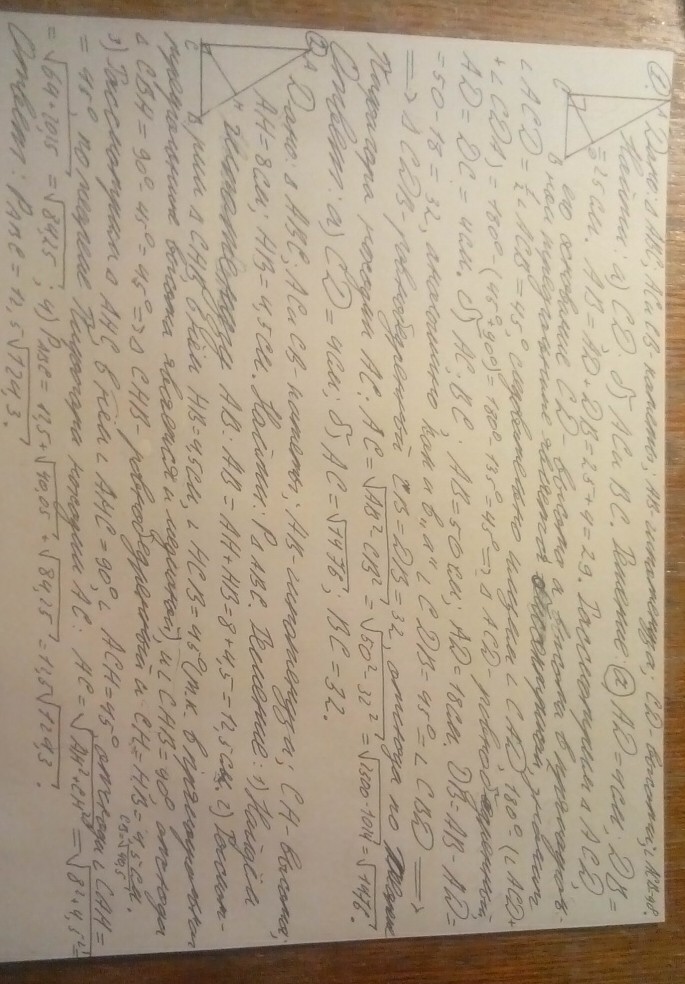 ① Дано: Δ ABC; AC и CB - катеты; AB - гипотенуза; CD - высота; ∠ ACB = 90°.
Найти: а) CD. б) AC и BC. Решение: а) AD = 4 см; DB =
= 25 см. AB = AD + DB = 25 + 4 = 29. Рассмотрим Δ ACD
его основание CD - высота а высота в
ней треугольнике является биссектрисой, значит
∠ ACD = ½ ∠ ACB = 45° следовательно ∠ CAD 180° (∠ ACD +
+ ∠ CDA) = 180° - (45° + 90°) = 180° - 135° = 45° ⇒ Δ ACD - равнобедренный,
AD = DC = 4 см. б) AC; BC: AB = 50 см; AD = 18 см. DB = AB - AD =
= 50 - 18 = 32, аналогично как и в "а" ∠ CDB = 45° = ∠ CBD ⟹
⟹ Δ CDB - равнобедренный CB = DB = 32, отсюда по теореме
Пифагора находим AC: AC = √AB² - CB² = √50² - 32² = √500 - 1014 = √1476.
Ответ: а) CD = 4 см; б) AC = √1476; BC = 32.
② Дано: Δ ABC; AC и CB - катеты; AB - гипотенуза; CH - высота;
AH = 8 см; HB = 4,5 см. Найти: P Δ ABC. Решение: 1) Найдём
гипотенузу AB: AB = AH + HB = 8 + 4,5 = 12,5 см. 2) Рассмот-
рим Δ CHB, в нём HB = 4,5 см, ∠ HCB = 45° (т.к. в
треугольнике высота является и медианой) и ∠ CHB = 90° отсюда
∠ CBH = 90° - 45° = 45° ⇒ Δ CHB - равнобедренный и CH = HB = 4,5 см.
CB = √40,5
3) Рассмотрим Δ AHC в нём ∠ AHC = 90°, ∠ ACH = 45° отсюда ∠ CAH =
= 45°, по теореме Пифагора находим AC: AC = √AH² + CH² = √8² + 4,5² =
= √64 + 20,15 = √84,25; 4) P ABC = 12,5 + √40,05 + √84,25 = 12,5 √124,3.
Ответ: P ABC = 12,5 √124,3.